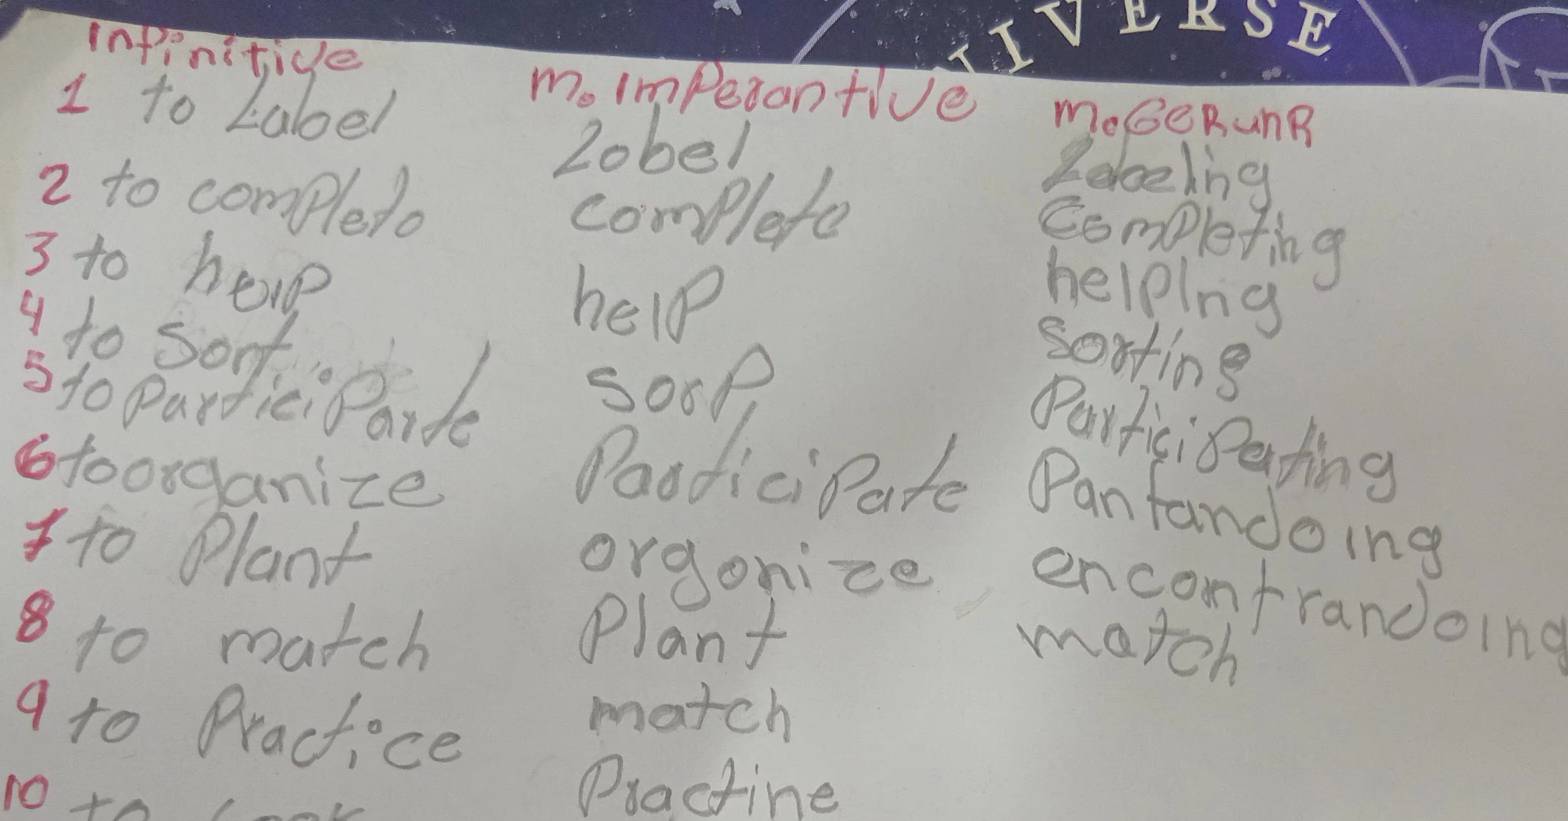 NIVERSE
Infinitive
m. Imperantive
m. GERunR
1 to Label
Lobel
Labeling
2 to completo
complete
completing
3 to help
help
helping
4 to Sort
Sorp
Sorting
5 to ParticiParte
Participate
Participating
6 to organize
orgonize
Pantandoing
7 to Plant
Plant
encontrandoing
8 to match
match
match
9 to Practice
Practine
10 to